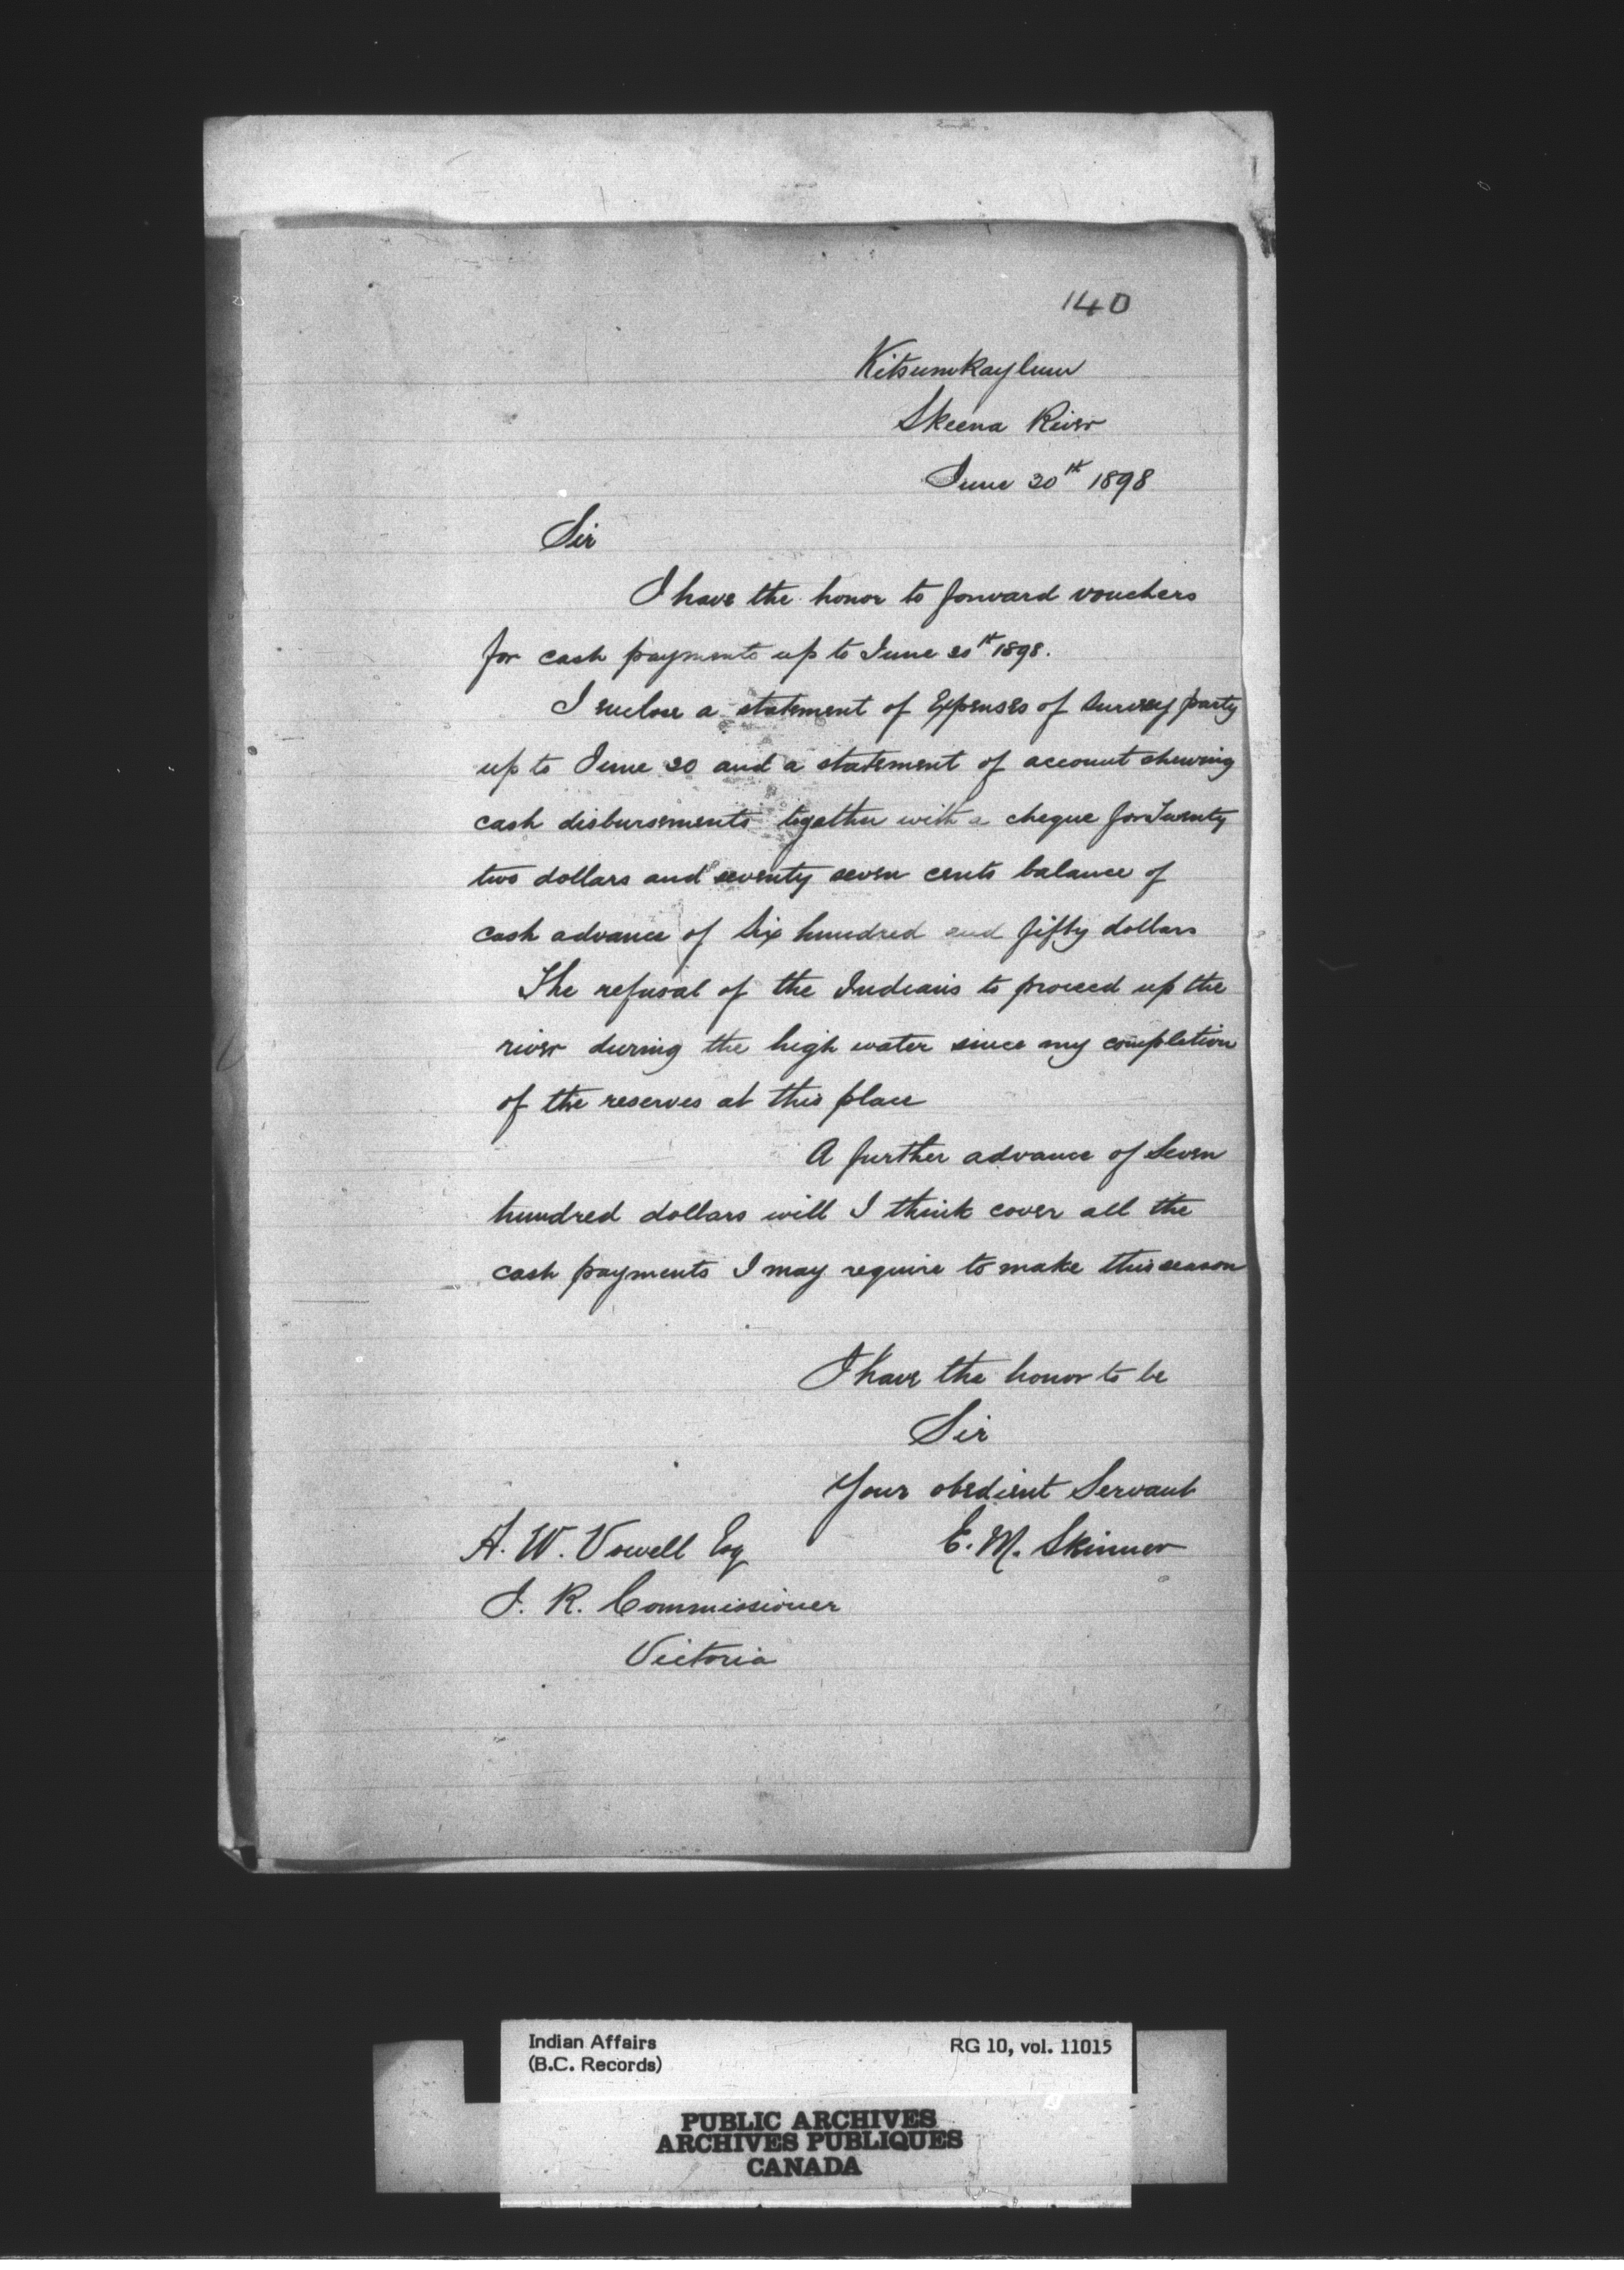 140
Kitsumkaylum
Skeena River
June 30th 1898
Sir
I have the honor to forward vouchers
for cash payments up to June 30th 1898.
I enclose a statement of Expenses of Survey party
up to June 30 and a statement of account shewing
cash disbursements together with a cheque for Twenty
two dollars and seventy seven cents balance of
cash advance of Six hundred and fifty dollars
The refusal of the Indians to proceed up the
river during the high water since my completion
of the reserves at this place
A further advance of Seven
hundred dollars will I think cover all the
cash payments I may require to make this season
I have the honor to be
Sir
Your obedient Servant
E. M. Skinner
A. W. Vowell Esq
I. R. Commissioner
Victoria
Indian Affairs
(B.C. Records)
RG 10, vol. 11015
PUBLIC ARCHIVES
ARCHIVES PUBLIQUES
CANADA